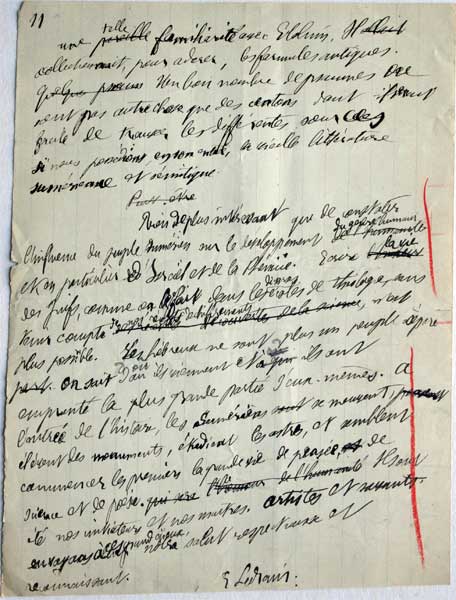 11
telle
une possible familiarité avec Elohim. Il
collectionnait, pour adorer, les formules antiques.
Quelque Un bon nombre de psaumes ne
sont pas autre chose que des centons dont il serait
facile de trouver les différentes sources
si nous possédions encore entière, la vieille littérature
sumérienne et sémitique.
Peut-être
Rien de plus intéressant que de constater
du genre humain
l'influence du peuple sumérien sur le développement de l'humanité
et en particulier d'Israël et de la Phénicie. Ecrire la vie
des Juifs, comme on le fait dans les écoles de théologie, sans
tenir compte des découvertes de la science, n'est
plus possible. Les hébreux ne sont plus un peuple à part
part. On sait d'où ils viennent et à qui ils ont
emprunté la plus grande partie d'eux-mêmes. A
l'entrée de l'histoire, les Sumériens se meuvent,
élèvent des monuments, étudient les astres, et semblent
commencer les premiers la grande vie de pensée, de
science et de poésie, qui sera l'honneur de l'humanité. Ils ont
été nos initiateurs et nos maîtres. artistes et savants.
envoyons à ces grands aïeux, notre salut respectueux et
reconnaissant.
E. Ledrain.